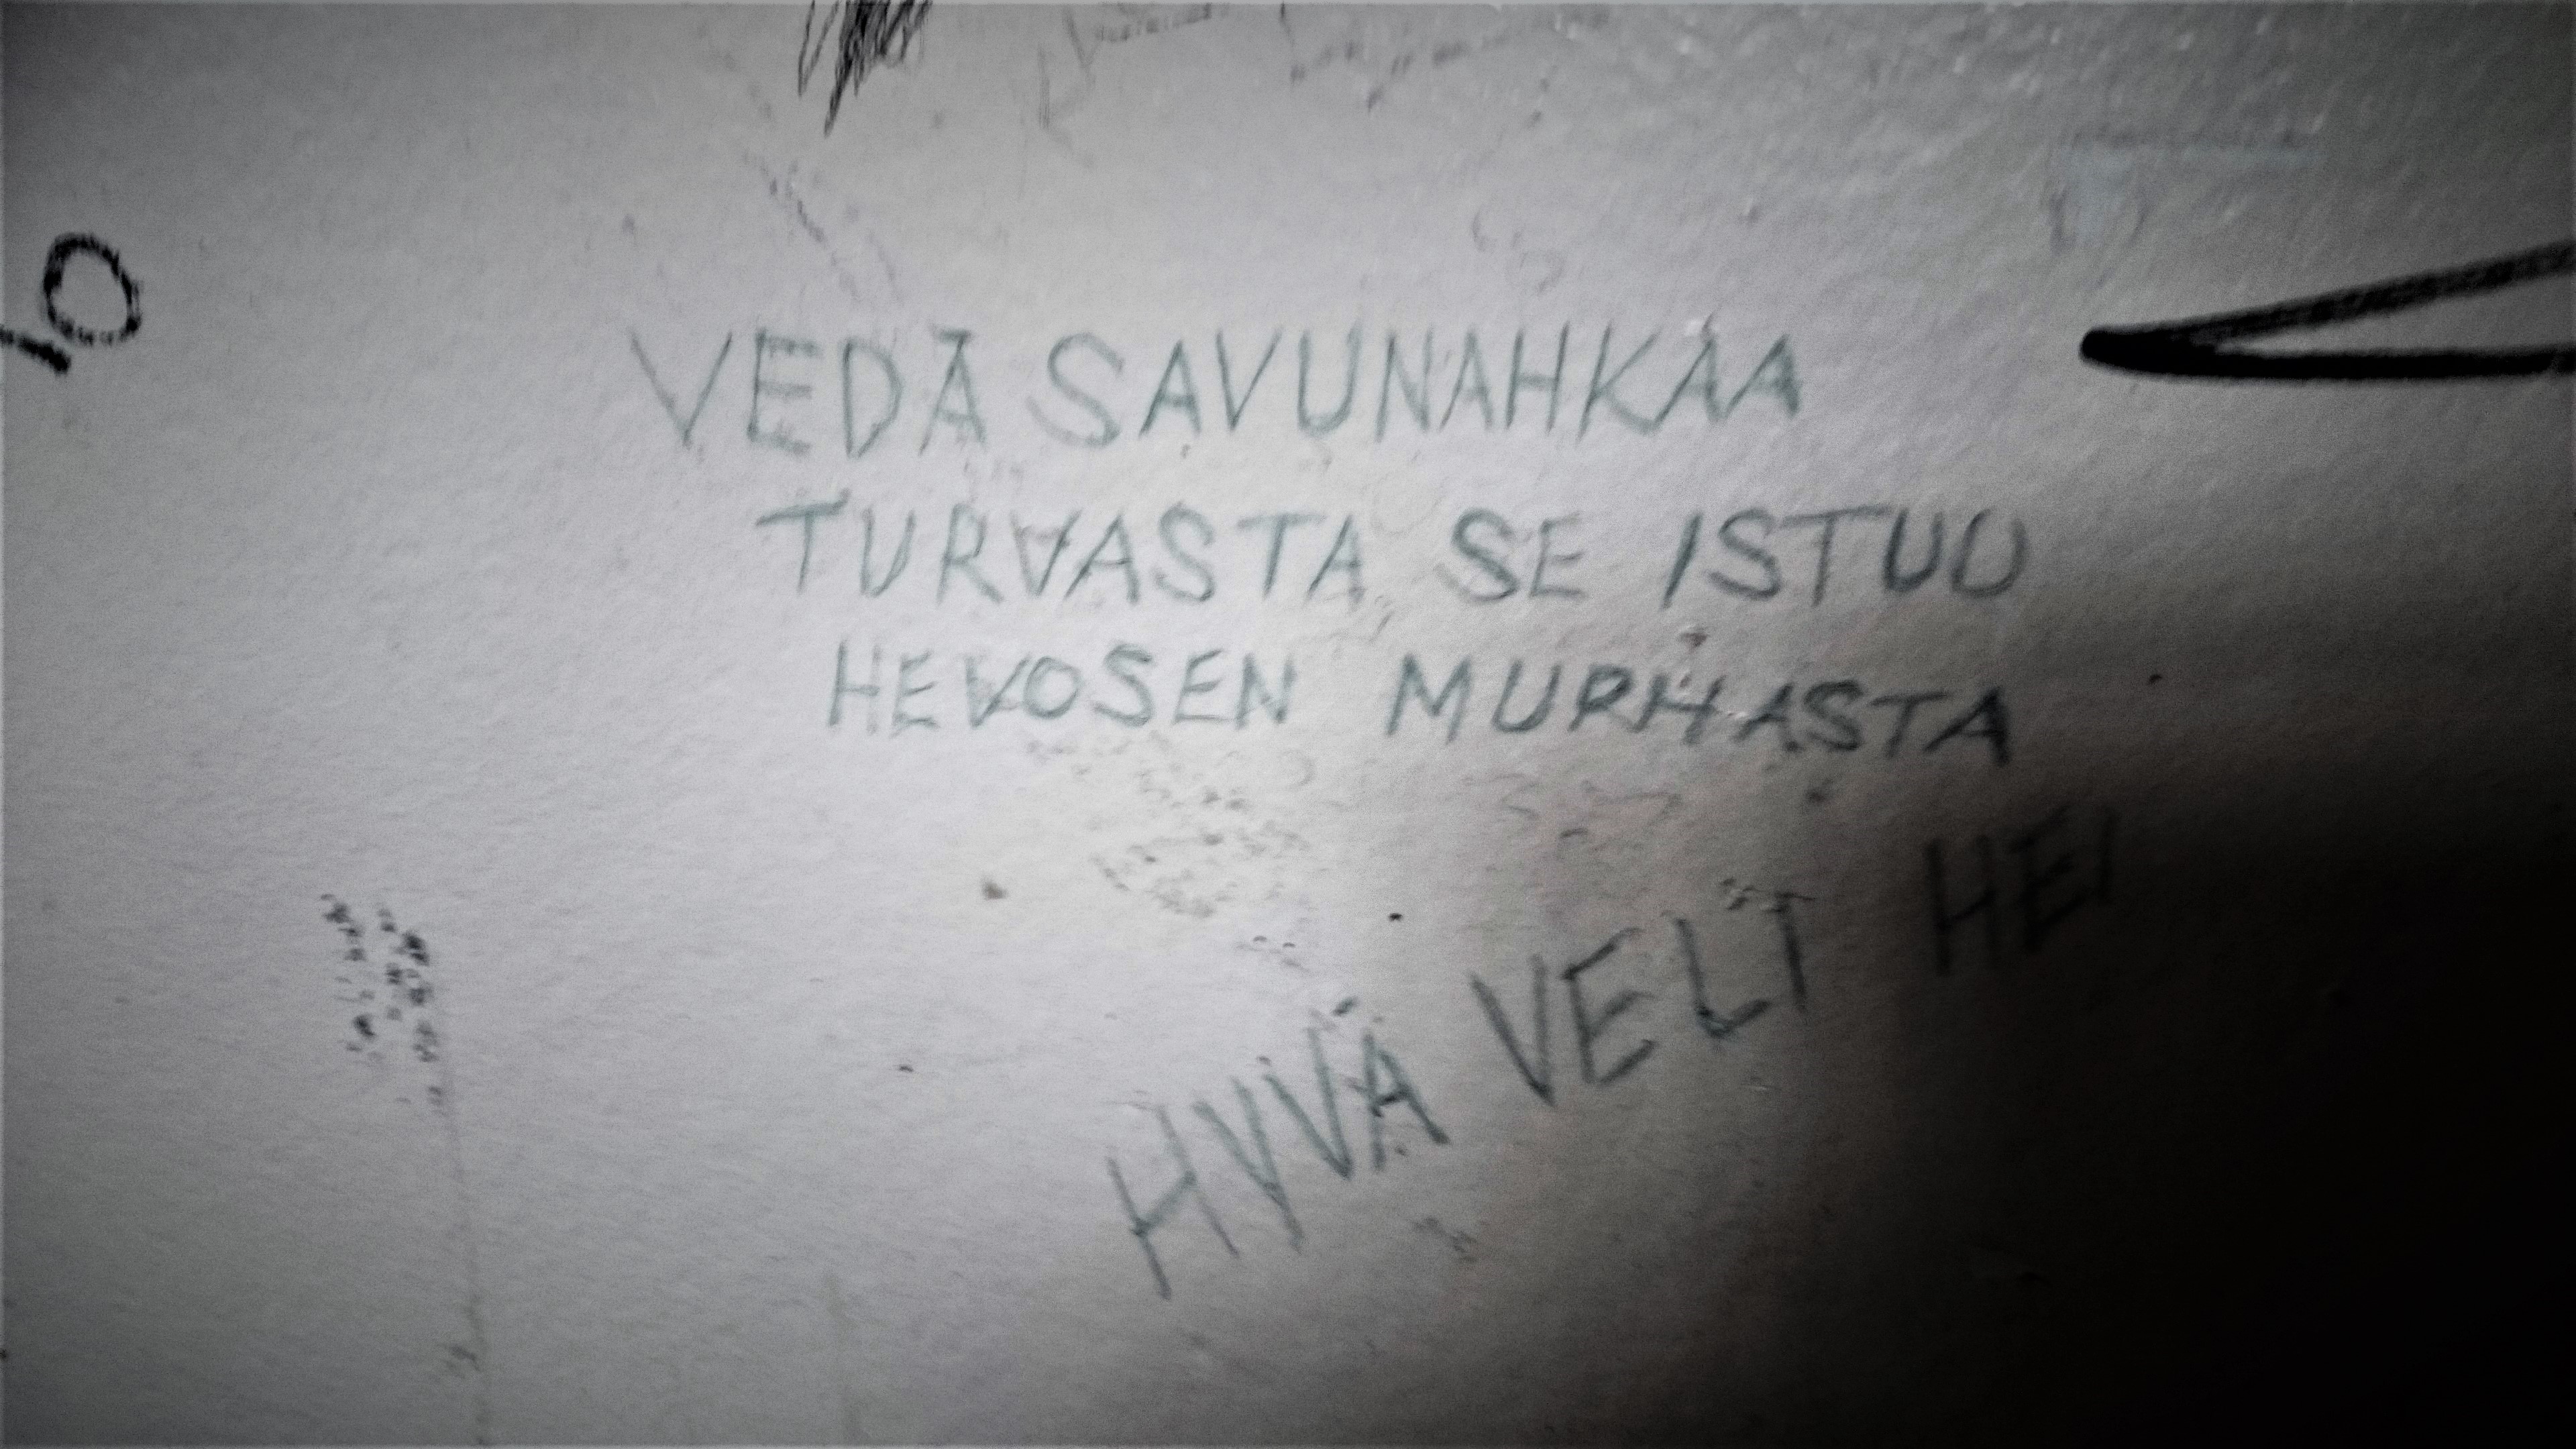 VEDÄ SAVUNAHKAA
TURVASTA SE ISTUU
HEVOSEN MURHASTA
HYVÄ VELI HEI